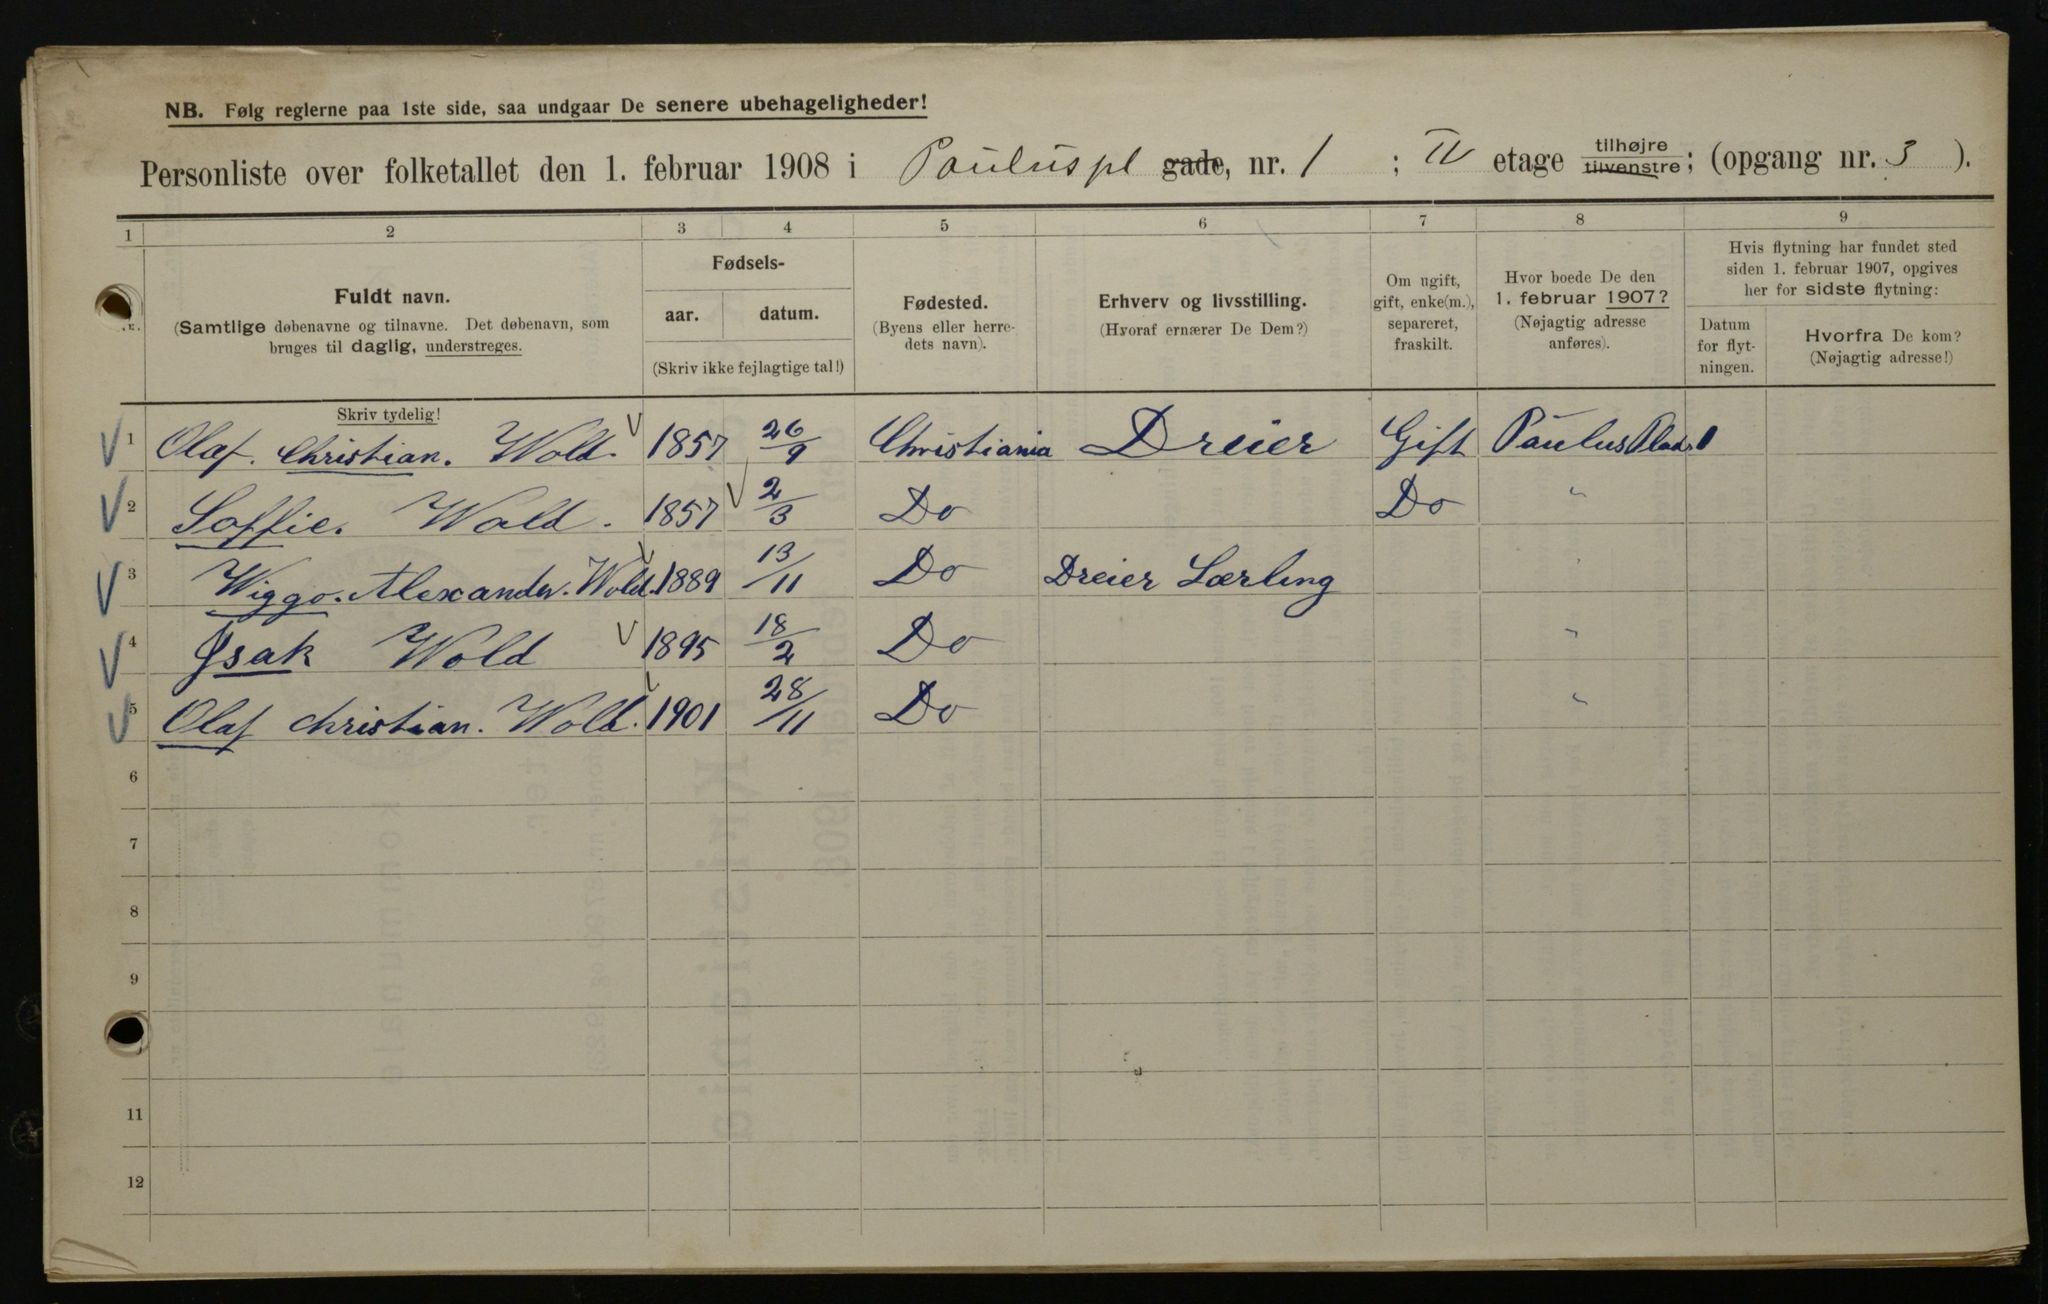 NB. Følg reglerne paa 1ste side, saa undgaar De senere ubehageligheder!
Personliste over folketallet den 1. februar 1908 i Pauluspl gade, nr. 1 ; IV etage tilhøjre tilvenstre; (opgang nr. 3 ).
1 2 3 4 5 6 7 8 9
Fuldt navn.
(Samtlige døbenavne og tilnavne. Det døbenavn, som
bruges til daglig, understreges.
Fødsels-
aar. datum.
(Skriv ikke fejlagtige tal!)
Fødested.
(Byens eller herre-
dets navn).
Erhverv og livsstilling.
(Hvoraf ernærer De Dem?)
Om ugift,
gift, enke(m.),
separeret,
fraskilt.
Hvor boede De den
1. februar 1907?
(Nøjagtig adresse
anføres).
Hvis flytning har fundet sted
siden 1. februar 1907, opgives
her for sidste flytning:
Datum
for flyt-
ningen.
Hvorfra De kom?
(Nøjagtig adresse!)
Skriv tydelig!
1 Olaf. Christian. Wold. 1857 26/9 Christiania Dreier Gift Paulus Plads 1
2 Soffie. Wold. 1857 2/3 Do Do "
3 Wiggo. Alexander. Wold. 1889 13/11 Do Dreier Lærling "
4 Isak Wold 1895 18/2 Do "
5 Olaf Christian. Wold. 1901 28/11 Do "
6
7
8
9
11
12